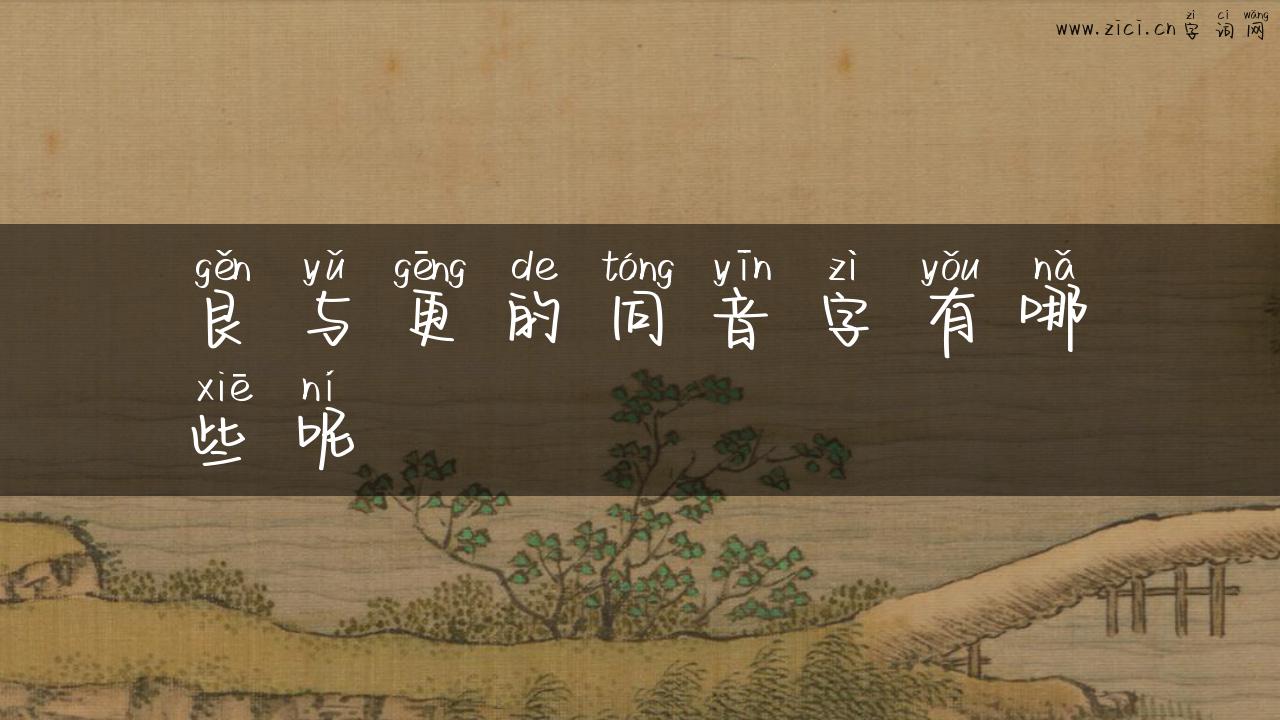 zì cí wǎng
www.zici.cn 字 词 网
gěn yǔ gēng de tóng yīn zì yǒu nǎ
艮 与 更 的 同 音 字 有 哪
xiē ní
些 呢